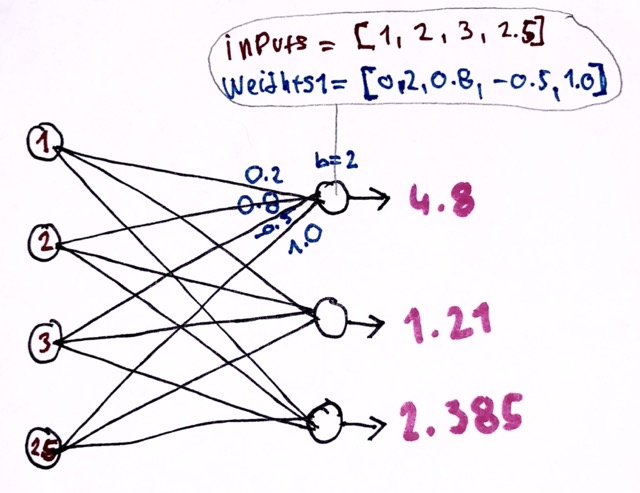 inputs = [1, 2, 3, 2.5]
weights1 = [0,2,0.8, -0.5, 1.0]
b=2
1
0.2
0.8
-0.5
1.0
4.8
2
3
1.21
2.5
2.385